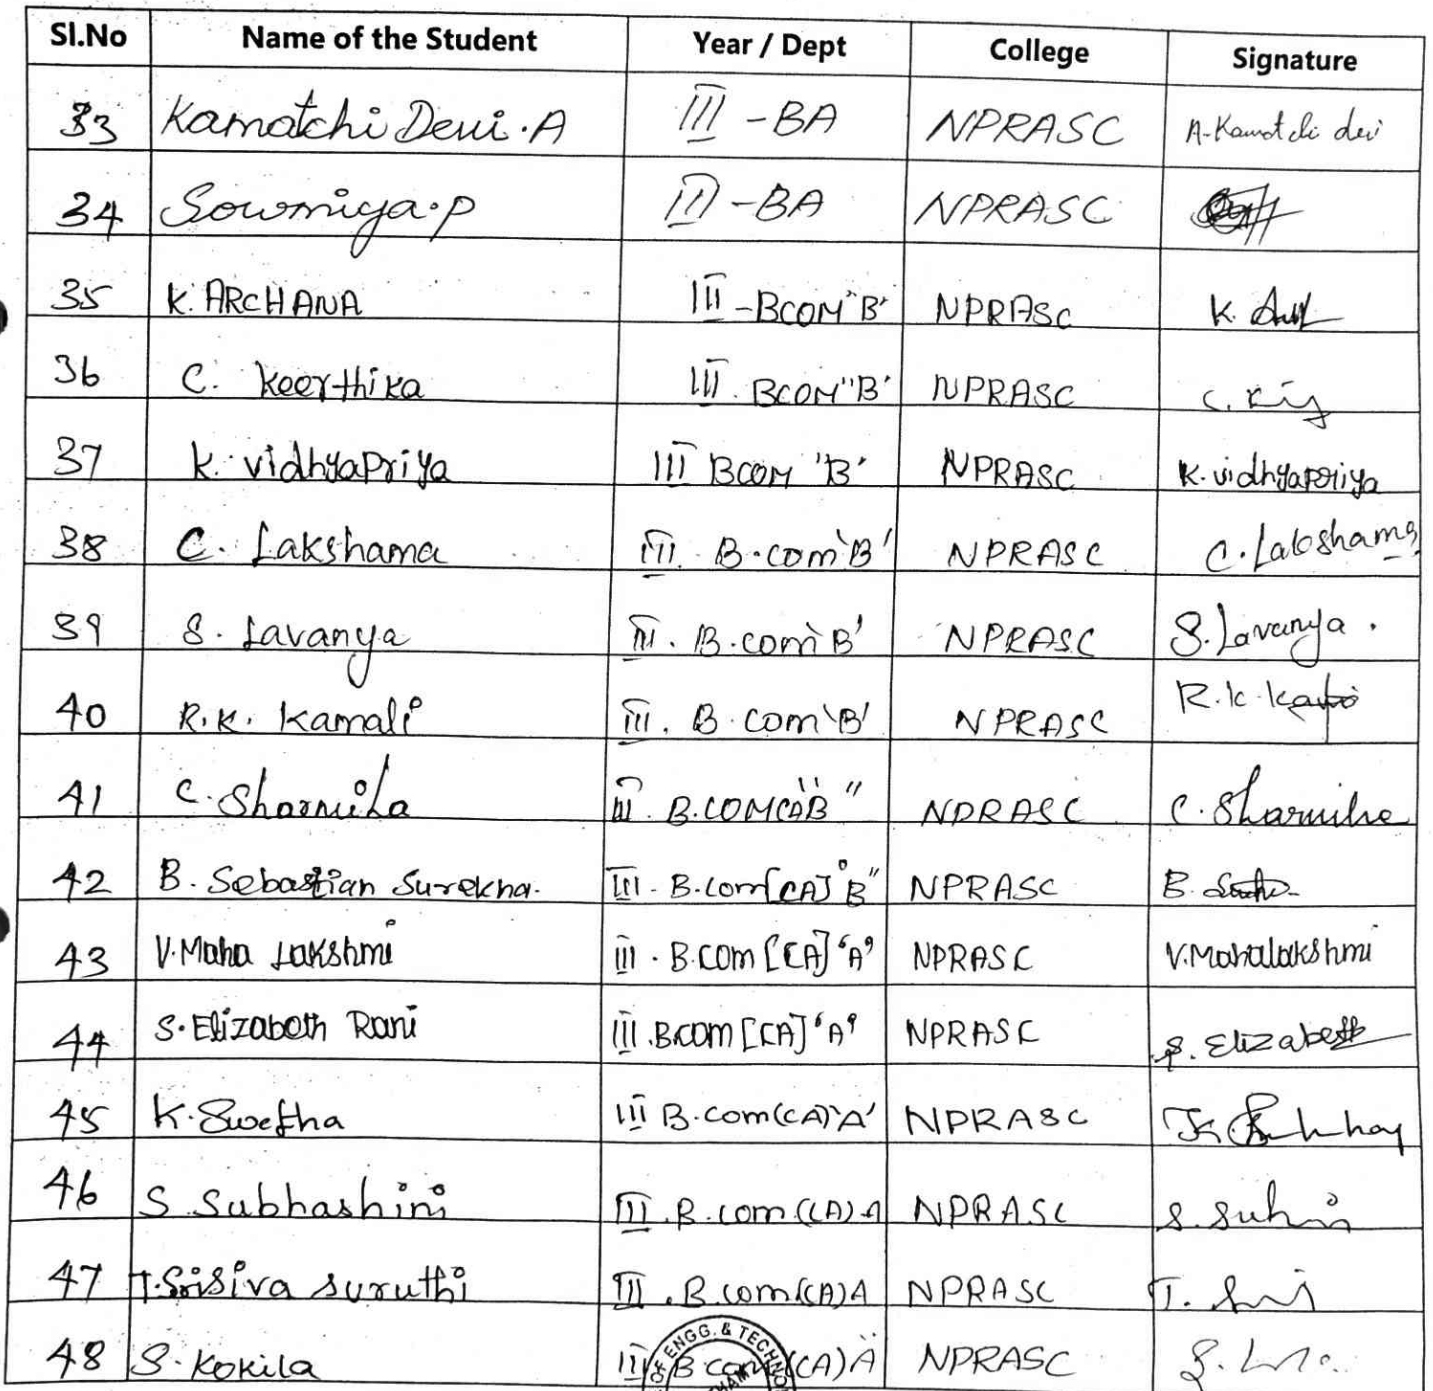 Sl.No Name of the Student Year / Dept College Signature
33 Kamatchi Devi.A III -BA NPRASC A-Kamatchi devi
34 Sowmiya.P III -BA NPRASC
35 K.ARCHANA III -BCOM"B' NPRASC K.
36 C. Keerthika III. BCOM"B' NPRASC C.
37 K. vidhyapriya III BCOM 'B' NPRASC K.vidhyapriya
38 C. Lakshama III. B.com'B' NPRASC C.Lakshama
39 S. Lavanya III. B.com'B' NPRASC S.Lavanya.
40 R.K. Kamali III. B.com'B' NPRASC R.K.
41 C.Sharmila III. B.COMCA"B" NPRASC C.Sharmila
42 B. Sebastian Surekha. III- B.com[CA]"B" NPRASC B.
43 V.Maha Lakshmi III. B.COM[CA]'A' NPRASC V.Mahalakshmi
44 S.Elizabeth Rani III.BCOM[CA]'A' NPRASC S.Elizabeth
45 K.Swetha III B.com(CA)'A' NPRASC
46 S.Subhashini III.B.com(CA)A NPRASC S.
47 T.Srisiva suruthi III.B.com(CA)A NPRASC T.
48 S.Kokila III B com(CA)A NPRASC S.
OF ENGG. & TECHNO